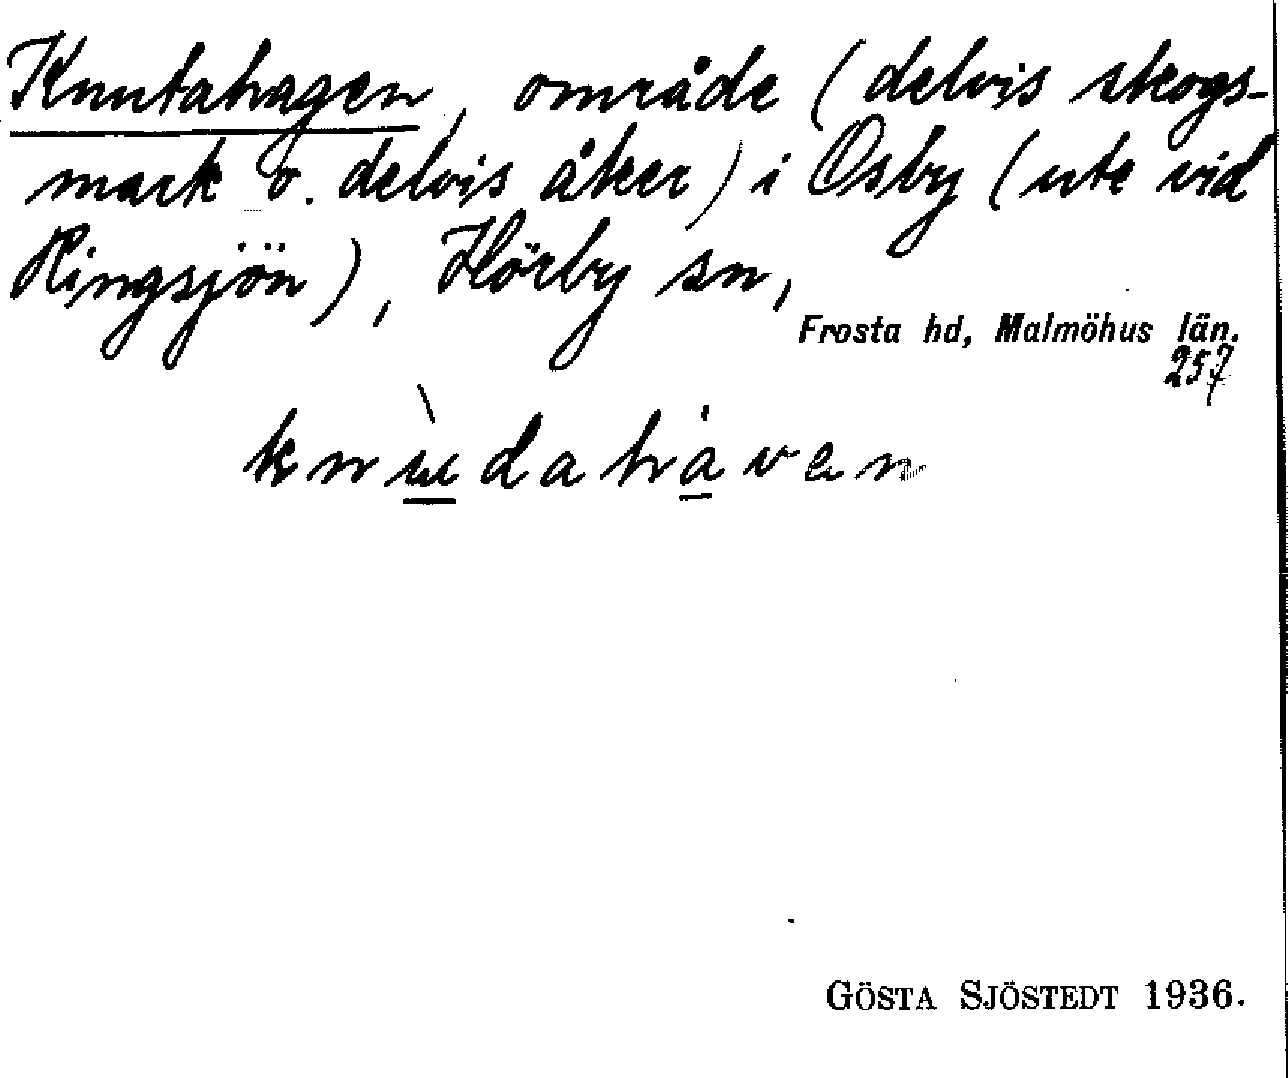 Knutahagen, område (delvis skogs-
mark o. delvis åker) i Osby (ute vid
Ringsjön), Hörby sn,
Frosta hd, Malmöhus län.
257
knùdahàven
GÖSTA SJÖSTEDT 1936.